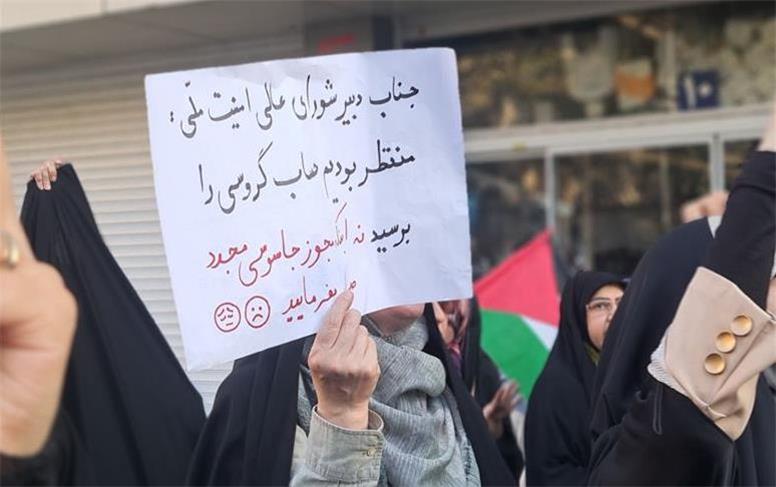 جناب دبیر شورای عالی امنیت ملّی:
منتظر بودیم حساب گروسی را
برسید نه اینکه مجوز جاسوسی مجدد
بفرمایید
۱۰